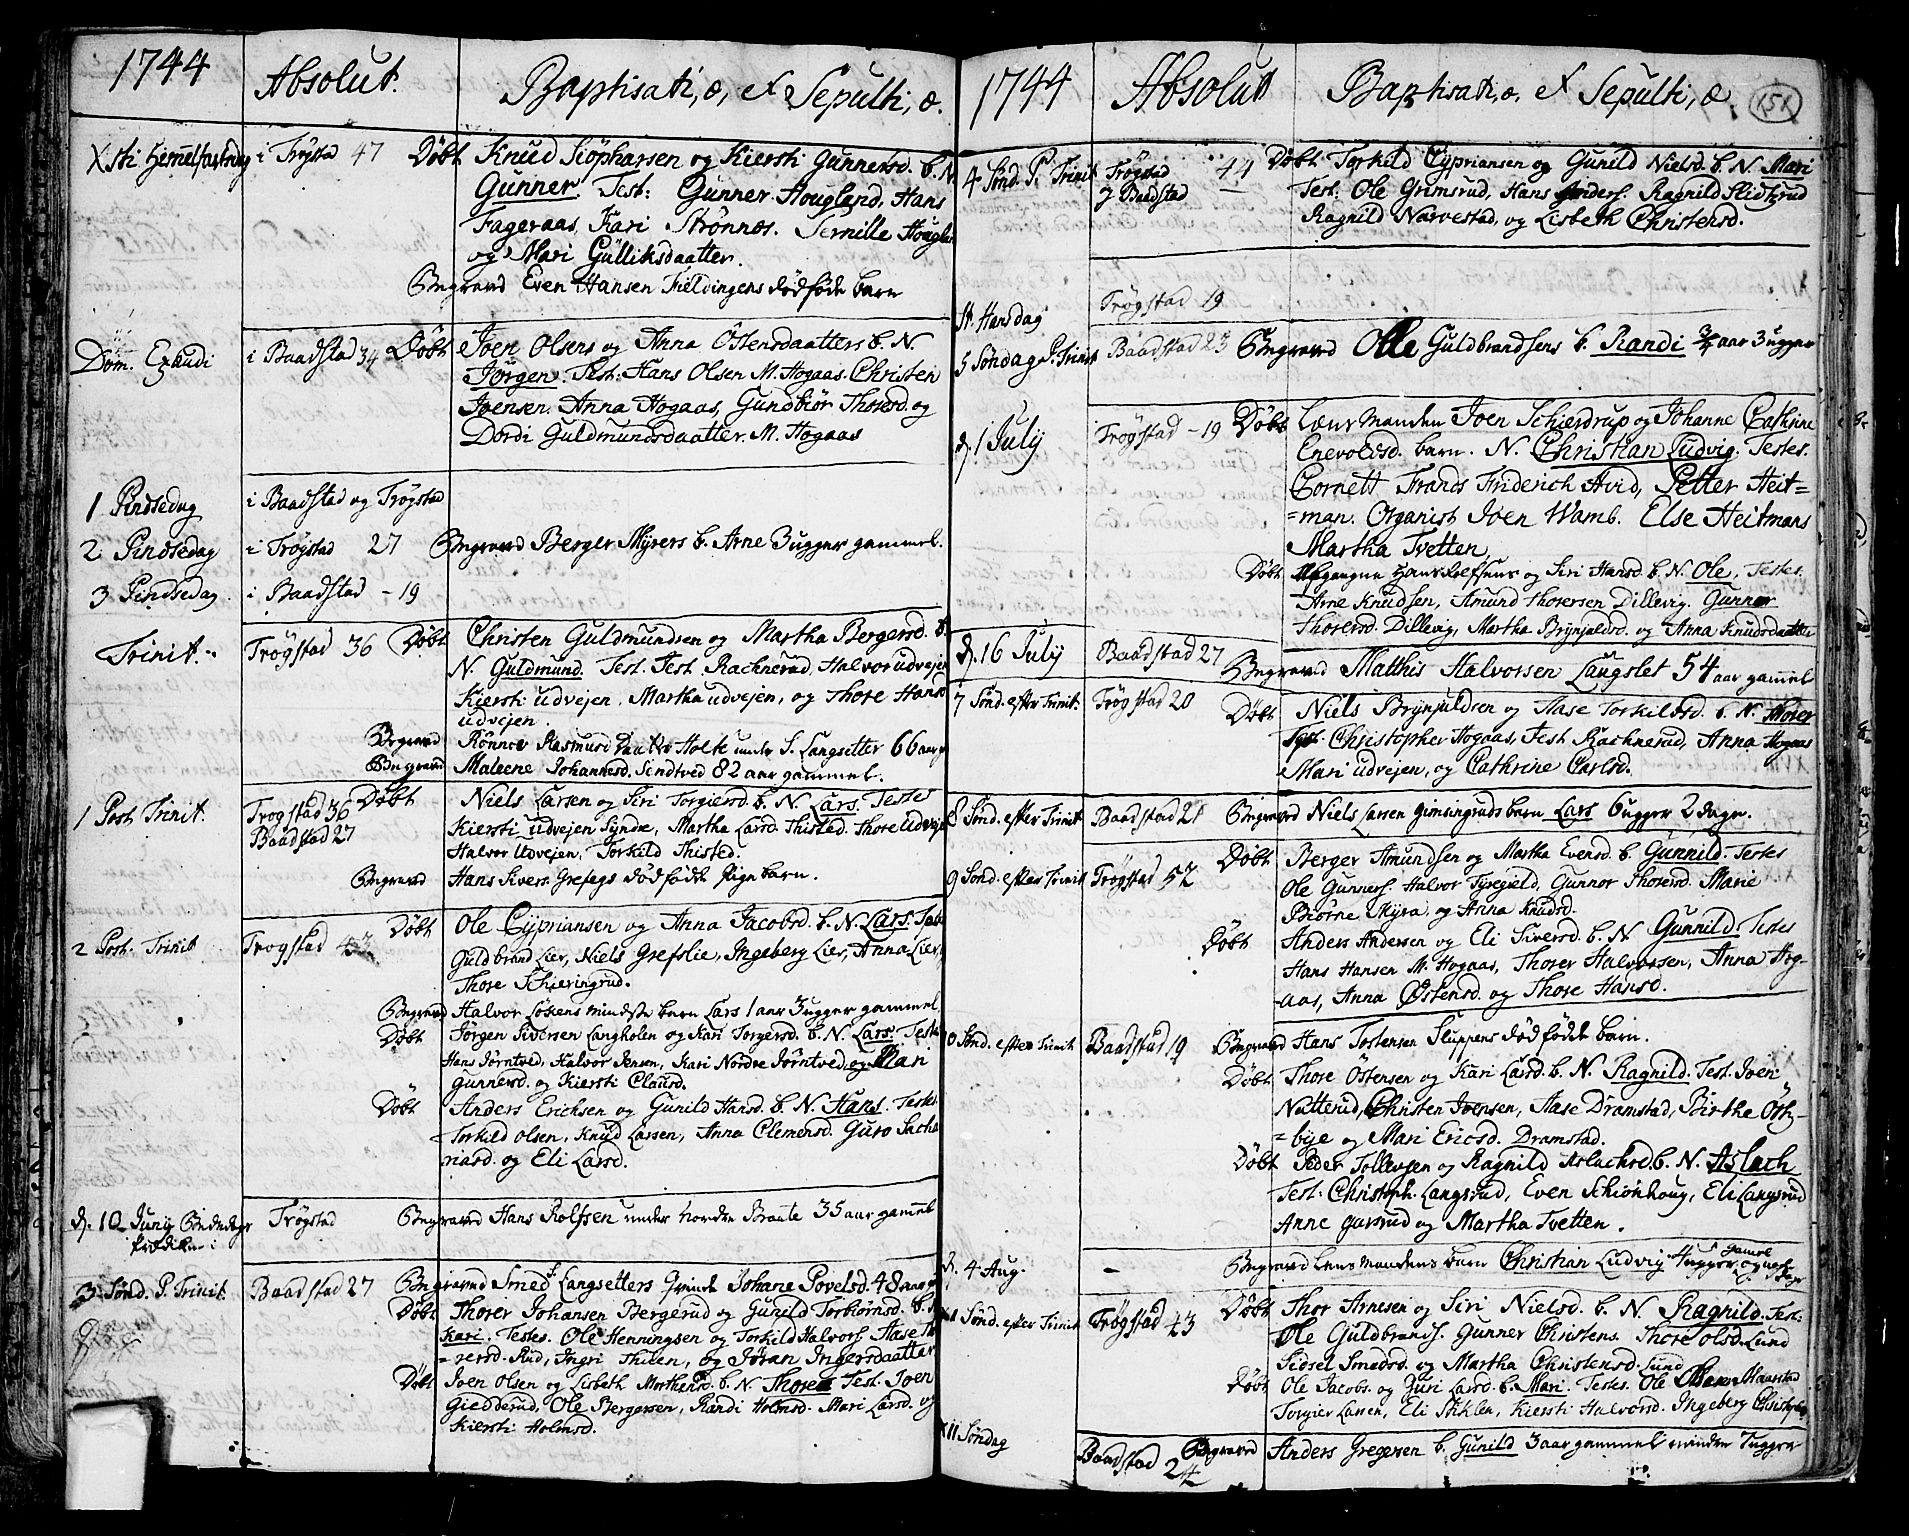 1744
Absolut.
Baptisati, æ, et Sepulti, æ.
Xsti Himmelfartsdag i Trøgstad 47 Døbt Knud Siöphæsen og Kiersti Gunnersd. b. N.
Gunner. Test: Gunner Hougland, Hans
Fageraas, Kari Strønnes. Pernille Hougla
og Mari Gulliksdaatter.
Begraved Even Hansen Kieldingens dødføde barn
Dom. Exaudi i Baadstad 34 Døbt Joen Olsens og Anna Östensdaatters b. N.
Jörgen. Test: Hans Olsen M. Hogaas. Christen
Joensen. Anna Hogaas, Gundbiör Thoresd. og
Dordi Guldmundsdaatter M. Hogaas
1 Pindsedag i Baadstad og Trøgstad
2 Pindsedag i Trøgstad 27 Begraved Berger Myrers b. Arne 3 uger gammel.
3 Pindsedag i Baadstad - 19
Trinit. Trøgstad 36 Døbt Christen Guldmundsen og Martha Bergersd. b.
N. Guldmund. Test. Test. Rachnerud, Halvor udvejen
Kiersti udvejen, Martha udvejen, og Thore Hans
udvejen.
Begraved Rönnov Rasmusd Daatter Holt under S. Langsetter 66 aar
Begraved Maleene Johannesd. Sendtved 82 aar gammel.
1 Post Trinit. Trøgstad 36 Døbt Niels Larsen og Siri Torgiersd. b. N. Lars. Testes
Baadstad 27 Kiersti udvejen Syndre, Martha Larsd. Thistad. Thore Udveje
Halvor Udvejen, Torkild Thisted.
Begraved Hans Sivers. Grefsgs dödfødde Pige barn.
2 Post. Trinit Trøgstad 43 Døbt Ole Cypriansen og Anna Jacobsd. b. N. Lars. Test
Guldbrand Lier, Niels Grefslie, Ingeberg Lier, Anna Lier,
Thore Schieringrud.
Begraved Halvor Løkens mindste barn Lars 1 aar 3 uger gammel
Døbt Jørgen Siversen Langholen og Kari Torgersd. b. N. Lars. Teste
Hans Jørntved, Halvor Jensen, Kari Nordre Jörntved, og Mari
Gunnersd. og Kiersti Clausd.
Døbt Anders Erichsen og Gunild Hansd. b. N. Hans. Testes
Torkild Olsen, Knud Larsen, Anna Clemensd. Guro Sacha
riasd. og Eli Larsd.
d. 10 Juny Bededags Trøgstad Begraved Hans Rolfsen under Nordre Braate 35 aar gammel
prædiken
3 Sönd. P. Trinit. Baadstad 27 Begraved Smed Langsetters Qvinde Johane Povelsd. 48 aar
Døbt Thorer Johansen Bergerud og Gunild Torbiörnsd. b. N
Kari. Testes. Ole Henningsen og Torkild Halvors. Aase Tho
=rersd. Rud, Ingri Thisen, og Jöran Ingersdaatter
Døbt Joen Olsen og Lisbeth Morthensd. b. N. Thore Test. Joen
Giedderud, Ole Bergersen, Randi Holmsd. Mari Larsd. og
Kiersti Holmsd.
1744
Absolut
Baptisati, æ, et Sepulti, æ. 151
4 Sönd. P. Trinit Trøgstad 44 Døbt Torkild Cypriansen og Gunild Nielsd. b. N. Mari
J Baadstad Test. Ole Grimsrud, Hans Anders. Ragnild Slidtzrud
Ragnild Narvestad, og Lisbeth Christensd.
St. Hansdag Trøgstad 19
5 Söndag P. Trinit Baadstad 23 Begraved Olle Guldbrandsens b. Randi 3/4 aar 3 uger
d. 1 July Trøgstad - 19 Døbt Lensmanden Joen Schierdrup og Johanne Cathrine
Enevoldsd. barn. N. Christian Ludvig. Testes.
Cornett Frands Friderich Hvid, Petter Heit=
=man. Organist Joen Wamb. Else Heitmans
Martha Tvetten
Døbt Afgangne Hans Rolfsens og Siri Hansd. b. N. Ole. Testes.
Arne Knudsen, Amund Thorersen Dillevig. Gunner
Thorersd. Dillevig, Martha Brynjulsd. og Anna Knudsdaatter
d. 16 July Baadstad 27 Begraved Matthis Halvorsen Langslet 54 aar gammel
7 Sönd. efter Trinit. Trøgstad 20 Døbt Niels Brynjuldsen og Aase Torkildsd. b. N. Thorer
Test. Christopher Hogaas, Test Rachnerud, Anna Hogaas
Mari udvejen, og Cathrine Carlsd.
8 Sönd. efter Trinit Baadstad 21 Begraved Niels Larsen Gimsingruds barn Lars 6 uger 2 dage.
9 Sönd. efter Trinit Trøgstad 52 Døbt Berger Amundsen og Martha Evensd. b. Gunnild. Testes
Ole Gunners. Halvor Tyregield, Gunnor Thorersd. Marie
Biørne Myra og Anna Knudsd.
Døbt Anders Andersen og Eli Siversd. b. N Gunnild. Testes
Hans Hansen M. Hogaas, Thorer Halvorsen, Anna Hog-
aas, Anna Östensd. og Thore Hansd.
10 Sönd. efter Trinit Baadstad 19 Begraved Hans Tostensen Sluppens dødfødde barn.
Døbt Thore Östensen og Kari Larsd. b. N. Ragnild. Test. Joen
Natterud, Christen Joensen, Aase Dramstad, Birthe Öst-
=bye og Mari Ericsd. Dramstad.
Døbt Peder Tollevsen og Ragnild Aslachsd. b. N. Aslach
Test. Christoph. Langsrud, Even Schiönhoug, Eli Langsrud
Anne Gusrud og Martha Tvetten.
d. 4 Aug. - Begraved Lensmandens barn Christian Ludvig 4 uger gamel
11 Sönd. efter Trinit Trøgstad 43 Døbt Thor Arnesen og Siri Nielsd. b. N Ragnild. Test:
Ole Guldbrands. Gunner Christens. Thore Olsd. Lund
Sidsel Smedsd. og Martha Christensd. Lund
Døbt Ole Jacobs. og Guri Larsd. b. Mari. Testes. Ole Maarstad
Torgier Larsen, Eli Stiklen, Kiersti Halvorsd. Ingeberg Christophe
XII Söndag Baadstad 24 Begraved Anders Gregersen b. Gunild 3 aar gammel mindre 7 uger